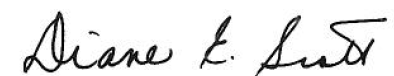 Diane E. Scott